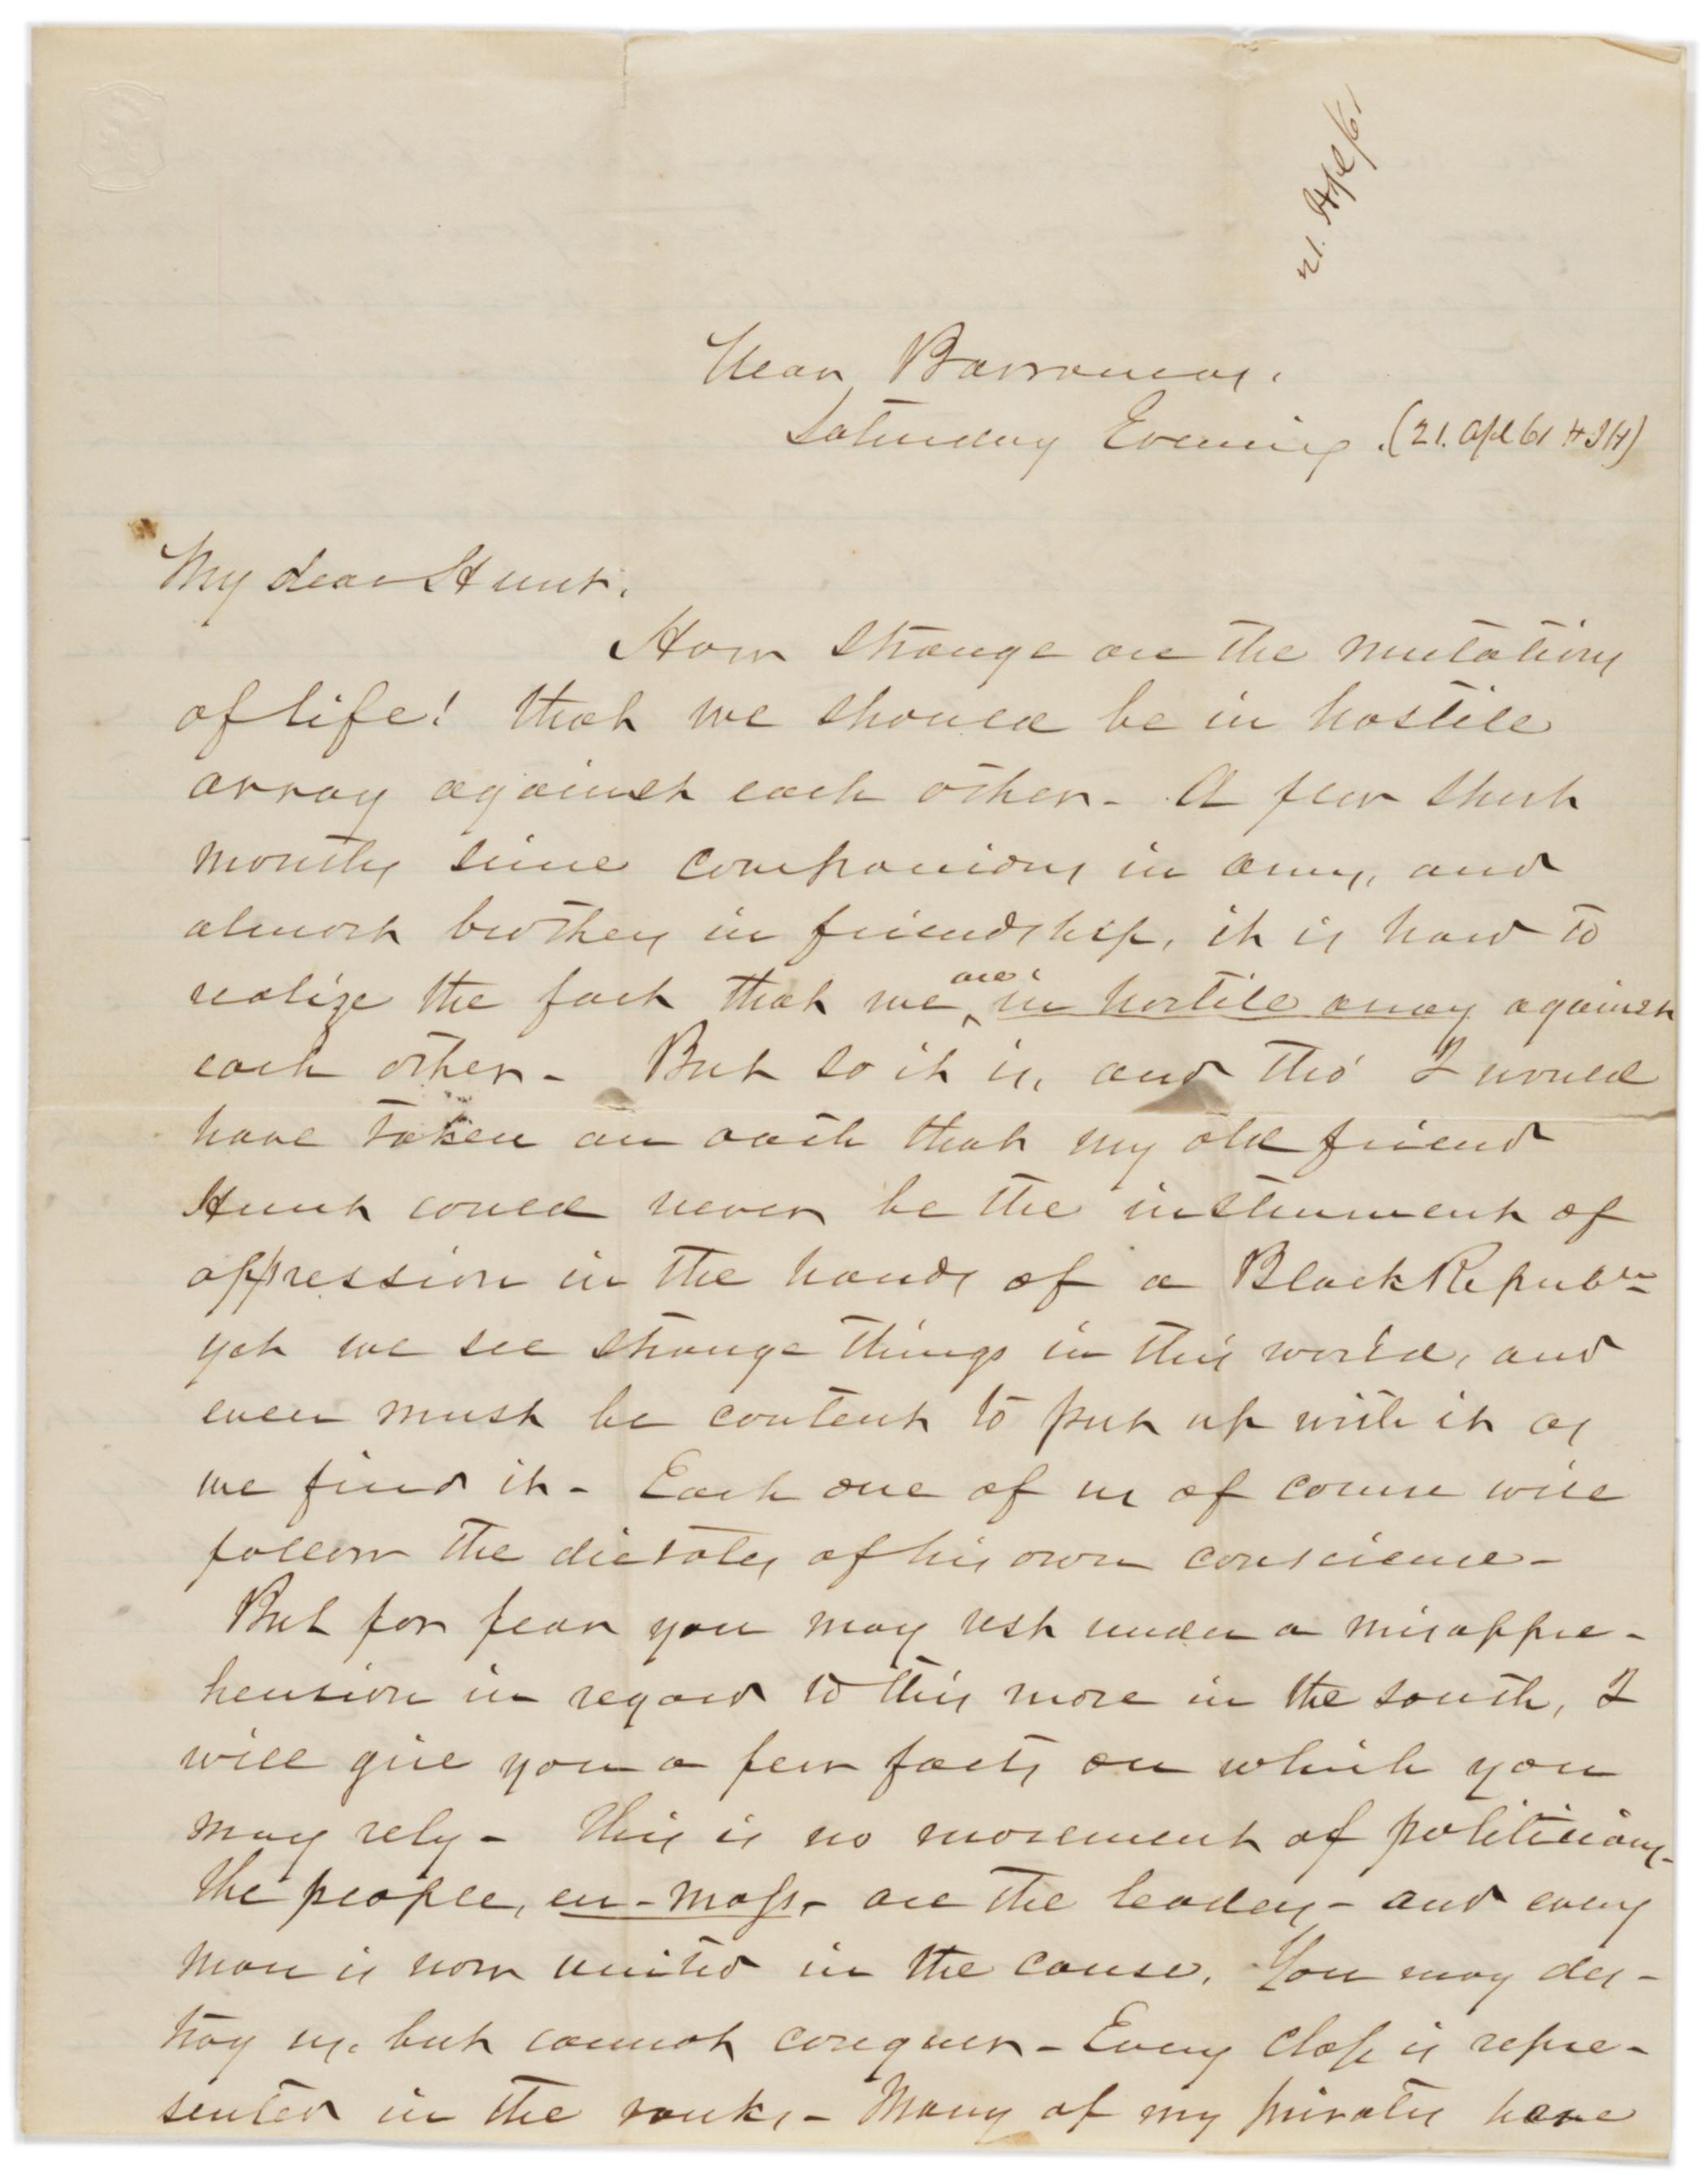 21. Apl/61
Near Barrancas.
Saturday Evening. (21. Apl 61 HJH)
My dear Hunt.
How strange are the mutations
of life! that we should be in hostile
array against each other - A few short
months since companions in arms, and
almost brothers in friendship, it is hard to
realize the fact that we are in hostile array against
each other - But so it is, and tho' I would
have taken an oath that my old friend
Hunt could never be the instrument of
oppression in the hands of a Black Repubn
yet we see strange things in this world, and
even must be content to put up with it as
we find it - Each one of us of course will
follow the dictates of his own conscience -
But for fear you may rest under a misappre-
hension in regard to this move in the south, I
will give you a few facts on which you
may rely - This is no movement of politicians -
The people, en-mass, are the leaders - and every
man is now united in the cause. You may des-
troy us, but cannot conquer - Every class is repre-
sented in the ranks, - Many of my privates have